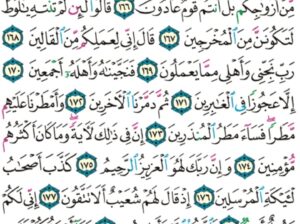 مِّنْ أَزْوَٰجِكُم بَلْ أَنتُمْ قَوْمٌ عَادُونَ ١٦٦ قَالُوا۟ لَئِن لَّمْ تَنتَهِ يَٰلُوطُ
لَتَكُونَنَّ مِنَ ٱلْمُخْرَجِينَ ١٦٧ قَالَ إِنِّى لِعَمَلِكُم مِّنَ ٱلْقَالِينَ ١٦٨
رَبِّ نَجِّنِى وَأَهْلِى مِمَّا يَعْمَلُونَ ١٦٩ فَنَجَّيْنَٰهُ وَأَهْلَهُۥٓ أَجْمَعِينَ ١٧٠
إِلَّا عَجُوزًا فِى ٱلْغَٰبِرِينَ ١٧١ ثُمَّ دَمَّرْنَا ٱلْءَاخَرِينَ ١٧٢ وَأَمْطَرْنَا عَلَيْهِم
مَّطَرًا فَسَآءَ مَطَرُ ٱلْمُنذَرِينَ ١٧٣ إِنَّ فِى ذَٰلِكَ لَءَايَةً وَمَا كَانَ أَكْثَرُهُم
مُّؤْمِنِينَ ١٧٤ وَإِنَّ رَبَّكَ لَهُوَ ٱلْعَزِيزُ ٱلرَّحِيمُ ١٧٥ كَذَّبَ أَصْحَٰبُ
لْـَٔيْكَةِ ٱلْمُرْسَلِينَ ١٧٦ إِذْ قَالَ لَهُمْ شُعَيْبٌ أَلَا تَتَّقُونَ ١٧٧ إِنِّى لَكُمْ